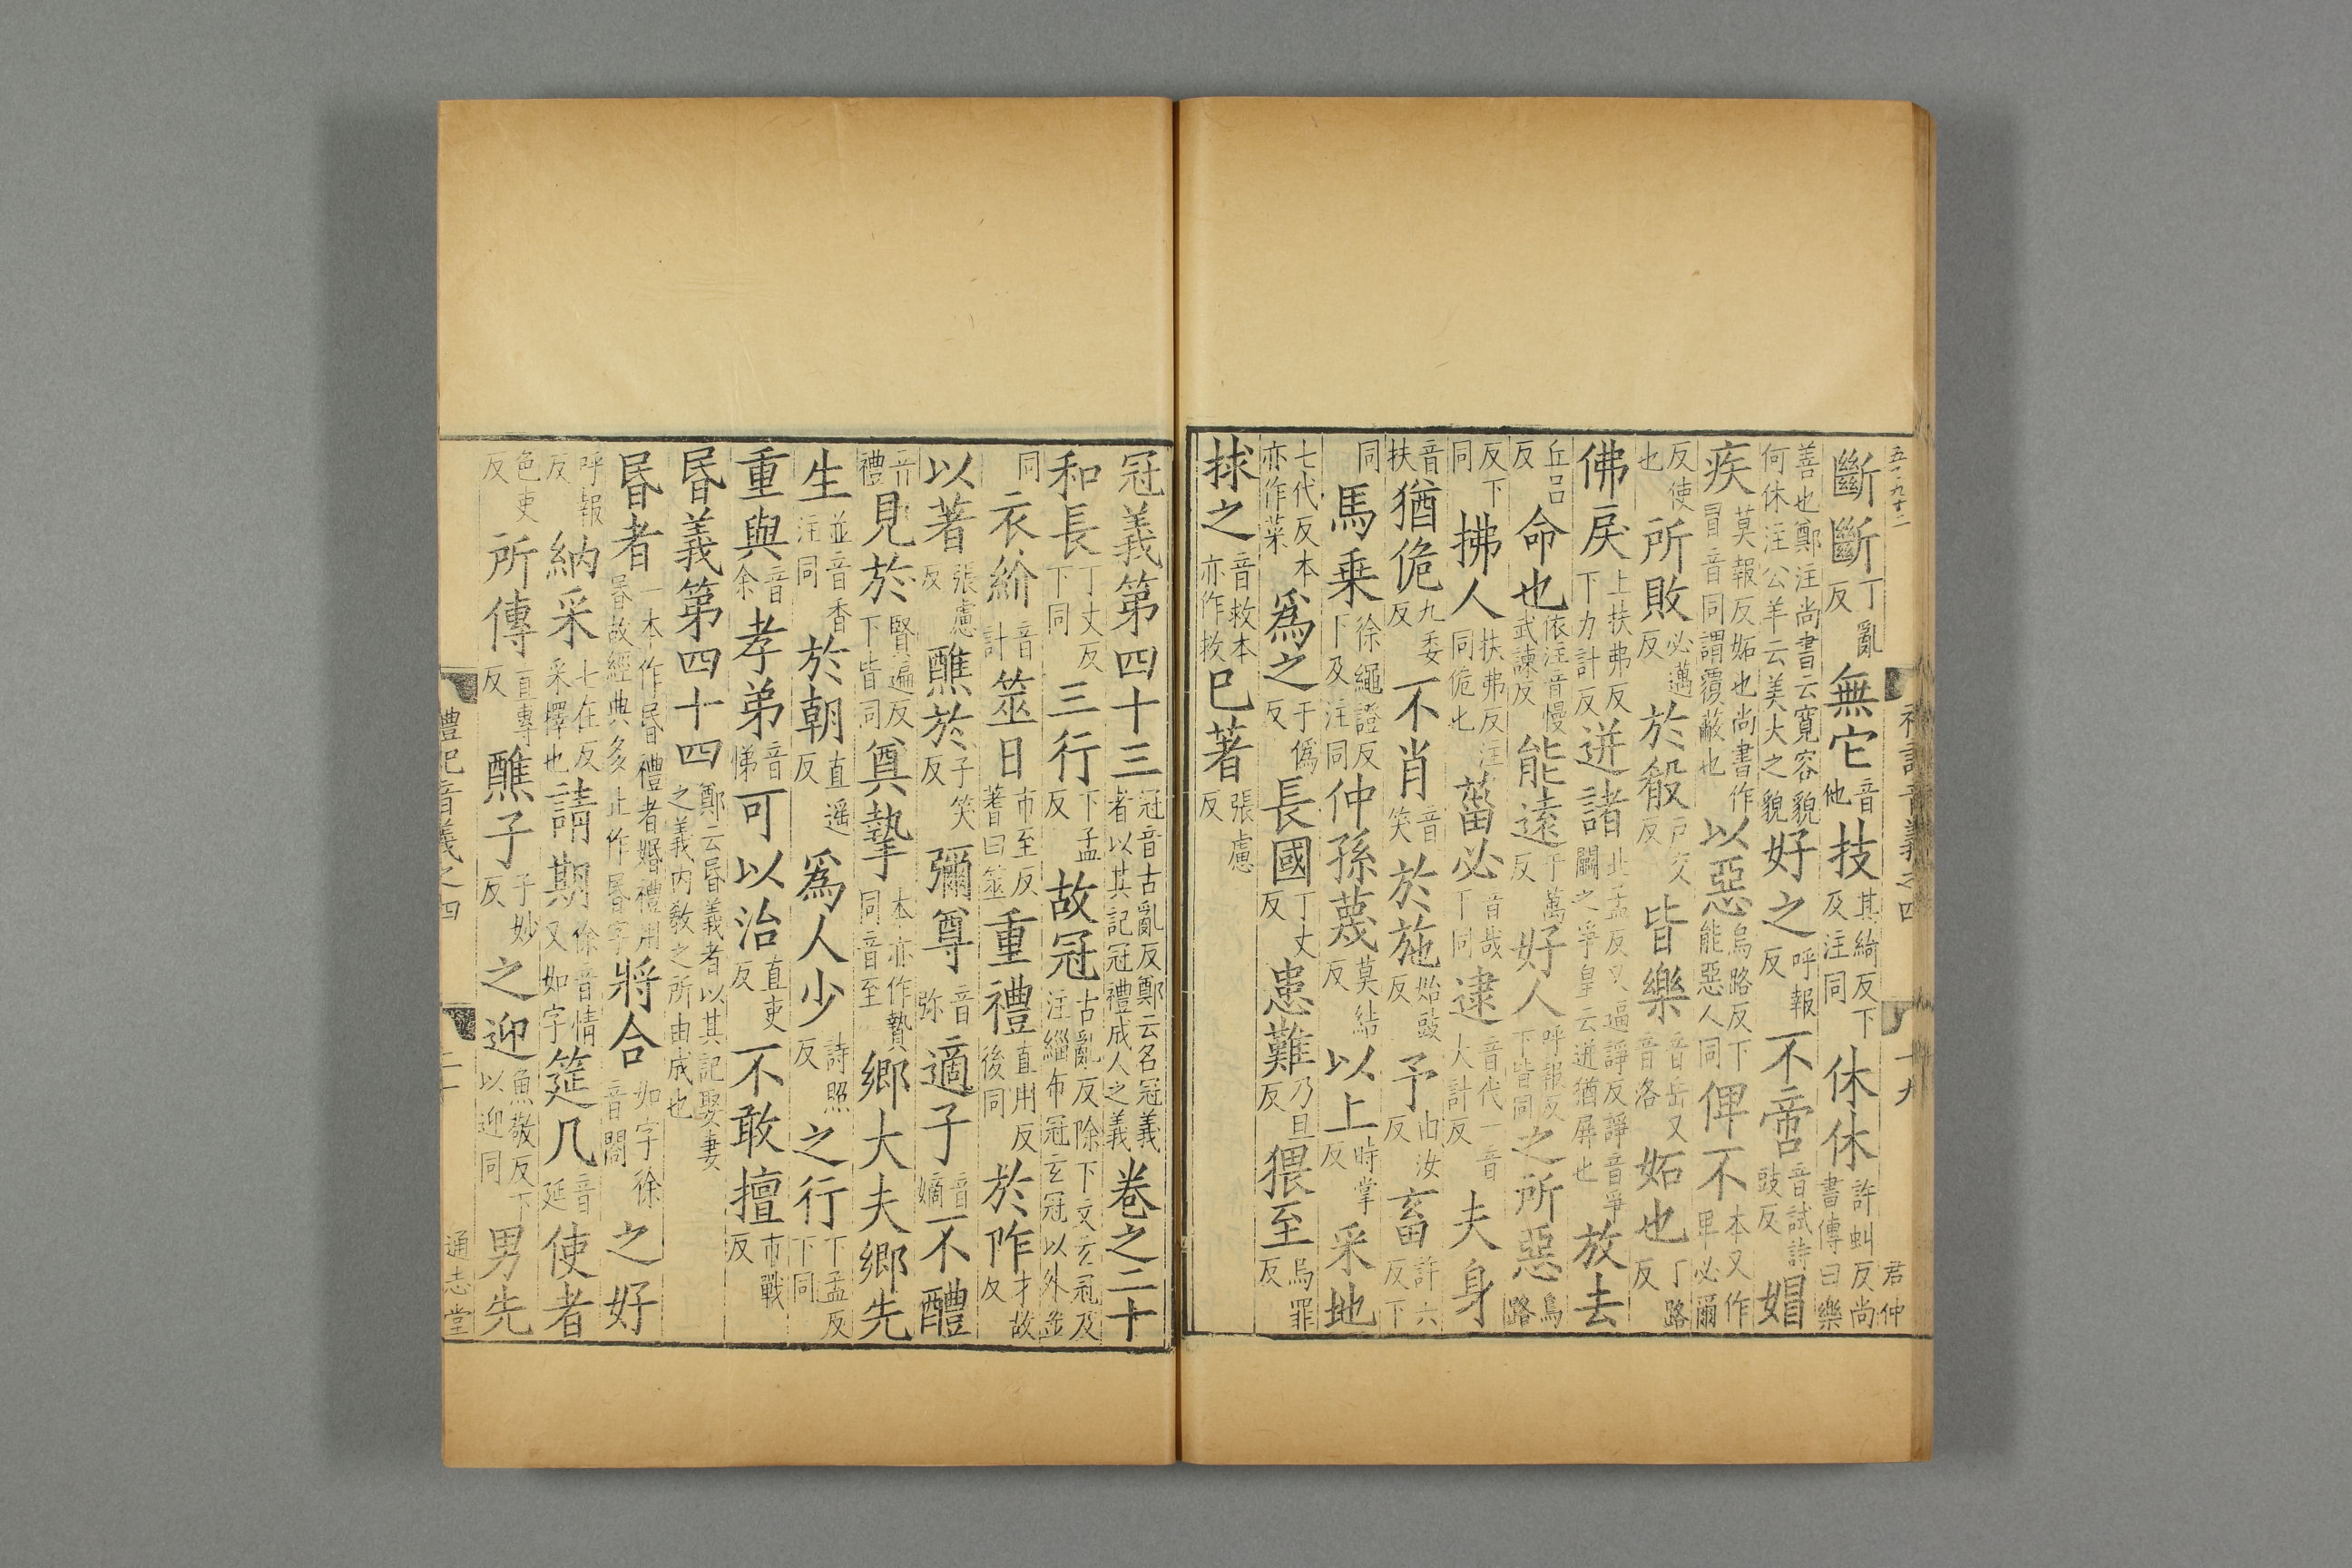 禮記音義之四 十九 君仲
斷斷丁亂反無它音他技其綺反下及注同休休許虯反尚書傳曰樂
善也鄭注尚書云寬容貌何休注公羊云美大之貌好之呼報反不啻音試詩豉反媢
疾莫報反妬也尚書作冒音同謂覆蔽也以惡烏路反下能惡人同俾不本又作卑必爾
反使也所敗必邁反於殽戸交反皆樂音岳又音洛妬也丁路反
佛戾上扶弗反下力計反迸諸北孟反又逼諍反諍音爭鬭之爭皇云迸猶屏也放去
丘呂反命也依注音慢武諫反能遠于萬反好人呼報反下皆同之所惡烏路
反下同拂人扶弗反注同佹也菑必音哉下同逮音代一音大計反夫身
音扶猶佹九委反不肖音笑於施始豉反予由汝反畜許六反下
同馬乘徐繩證反下及注同仲孫蔑莫結反以上時掌反采地
七代反本亦作菜爲之于僞反長國丁丈反患難乃旦反猥至烏罪反
捄之音救本亦作救巳著張慮反
冠義第四十三冠音古亂反鄭云名冠義者以其記冠禮成人之義卷之二十
和長丁丈反下同三行下孟反故冠古亂反除下文玄冠及注緇布冠玄冠以外並
同衣紒音計筮日市至反蓍曰筮重禮直用反後同於阼才故反
以著張慮反醮於子笑反彌尊音弥適子音嫡不醴
音禮見於賢遍反下皆同奠摯本亦作贄同音至鄉大夫鄉先
生並音香注同於朝直遥反爲人少詩照反之行下孟反下同
重與音余孝弟音悌可以治直吏反不敢擅市戰反
昬義第四十四鄭云昬義者以其記娶妻之義内敎之所由成也
昬者一本作昬禮者婚禮用昬故經典多止作昬字將合如字徐音閤之好
呼報反納采七在反采擇也請期徐音情又如字筵几音延使者
色吏反所傳直專反醮子子妙反之迎魚敬反下以迎同男先
禮記音義之四 二十 通志堂